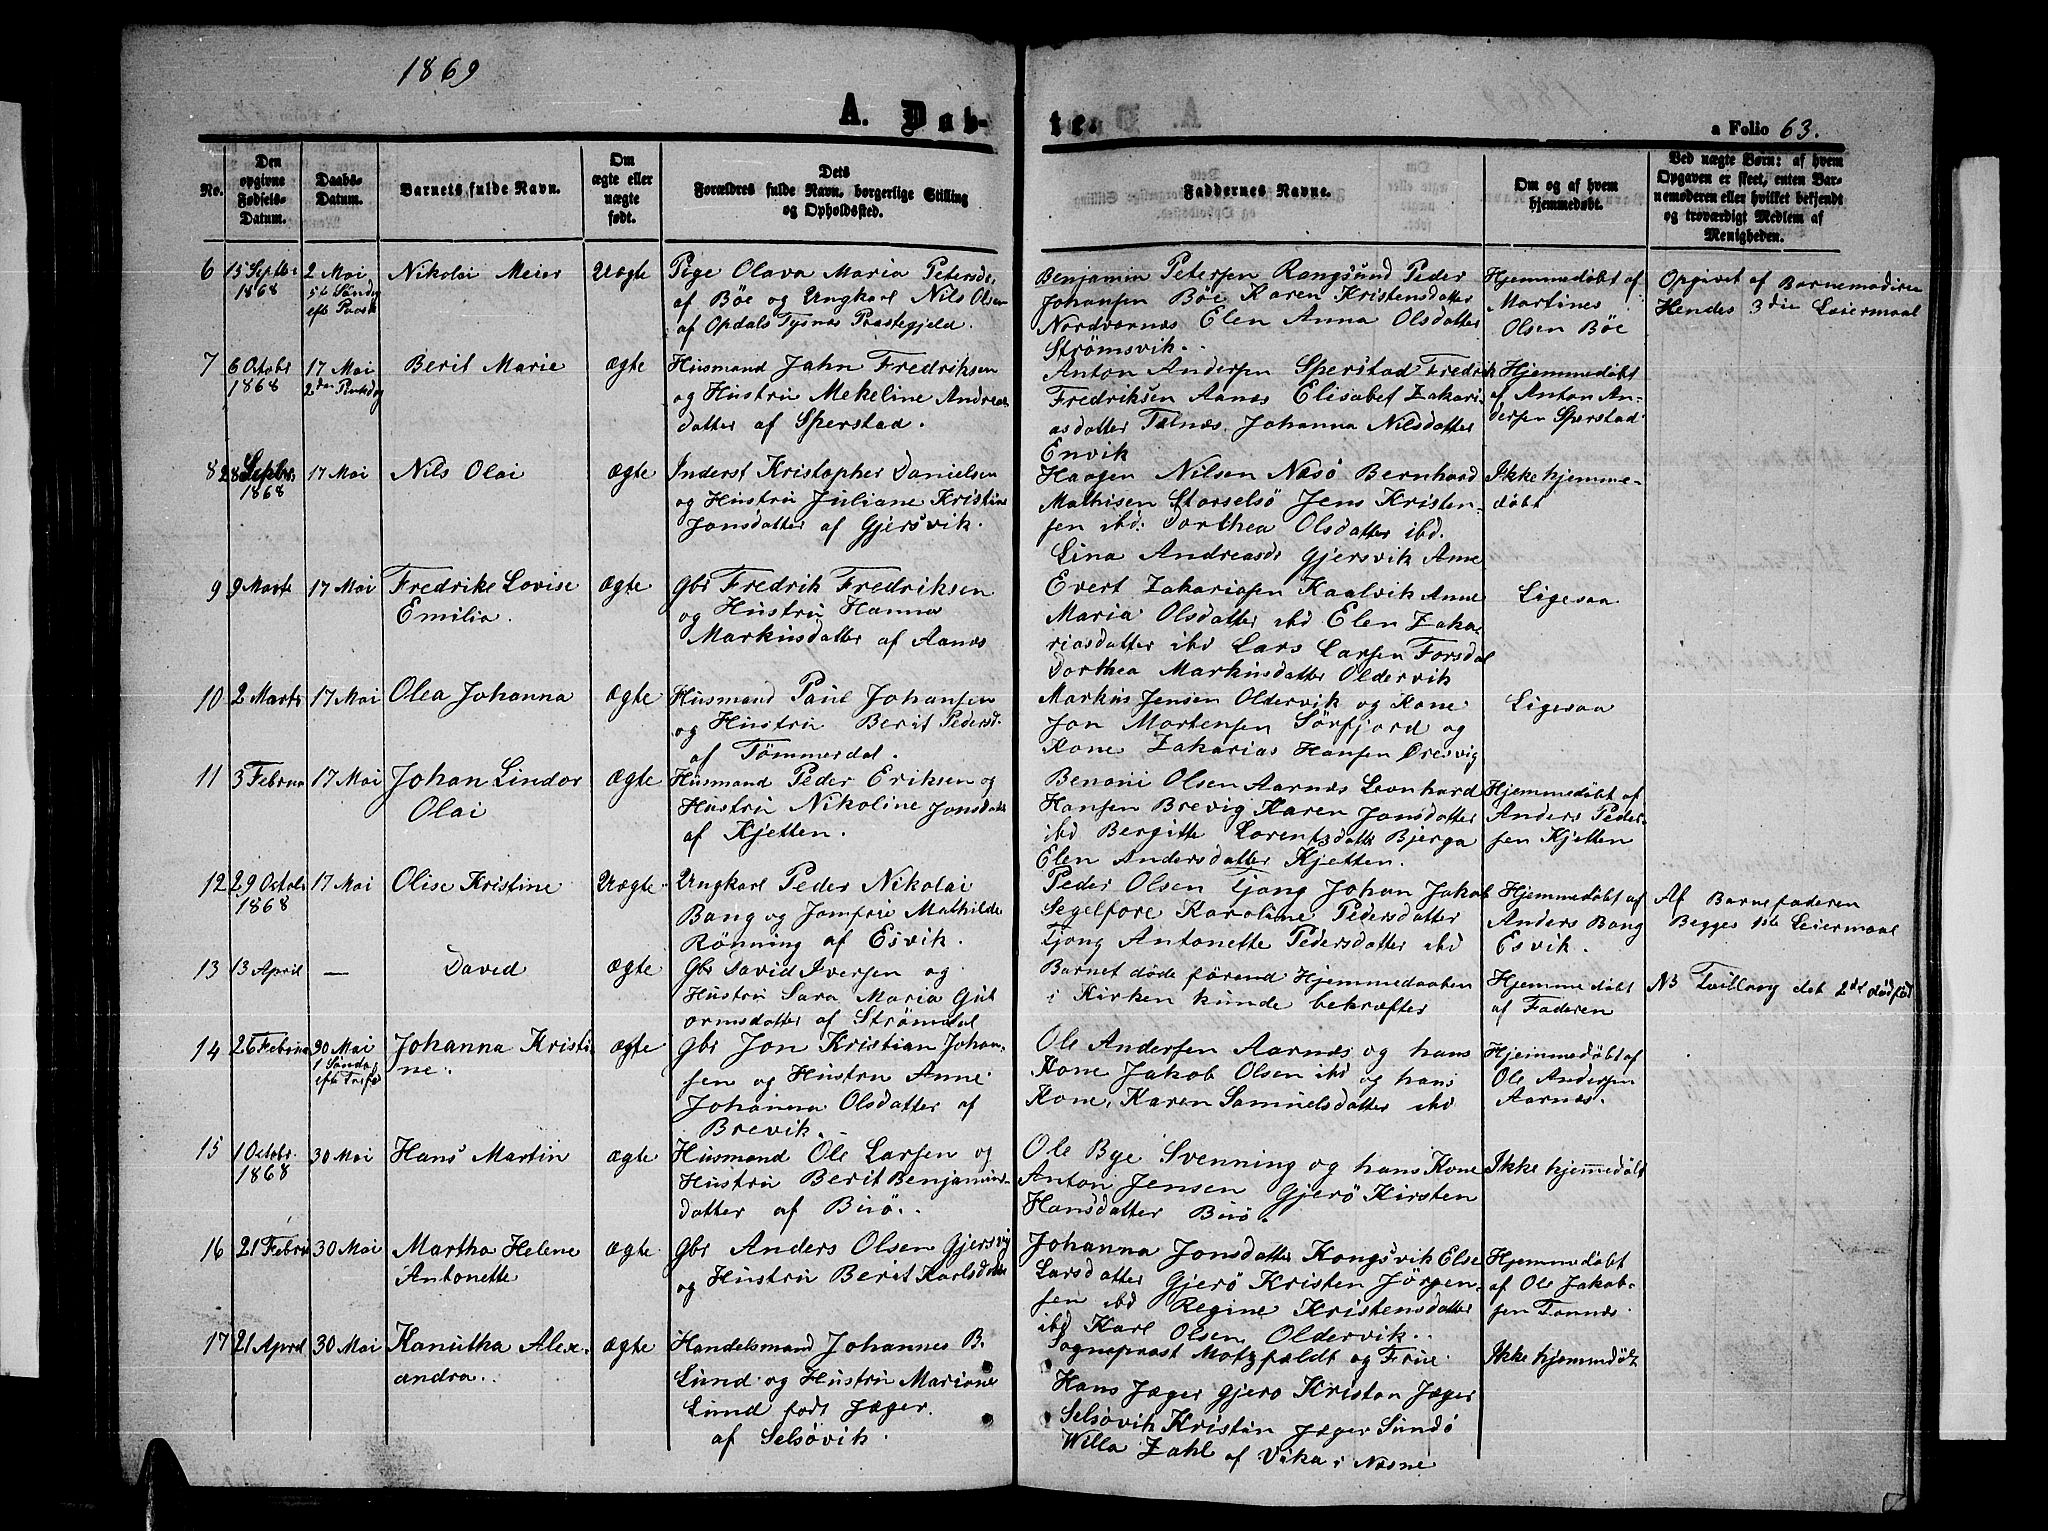 1869
A. Døb-
te.
a Folio 63.
No.
Den opgivne Fødsels-Datum.
Daabs-Datum.
Barnets fulde Navn.
Om ægte eller uægte født.
Dets Forældres fulde Navn, borgerlige Stilling og Opholdssted.
Faddernes Navne.
Om og af hvem hjemmedøbt.
Ved uægte Børn: af hvem Opgaven er skeet, enten Barnemoderen eller hvilket bekjendt og troværdigt Medlem af Menigheden.
6 15 Septbr 1868
2 Mai 5te Søndag eft Paaske
Nikolai Meier
Uægte
Pige Olava Maria Petersdr
af Böe og Ungkarl Nils Olsen
af Opdals Tysnæs Præstegjeld.
Benjamin Petersen Rangsund Peder
Johansen Böe Karen Kristensdatter
Nordværnæs Elen Anna Olsdatter
Strömsvik.
Hjemmedöbt af
Martines
Olsen Böe
Opgivet af Barnemoderen
Hendes 3die Leiermaal
7 6 Octobr 1868
17 Mai 2den Pintsedag
Berit Marie
ægte
Husmand Jahn Fredriksen
og Hustru Mekeline Andreas
datter af Sperstad.
Anton Andersen Sperstad Fredrik
Fredriksen Aanæs Elisabet Zakari-
asdatter Tælnæs Johanna Nilsdatter
Envik
Hjemmedöbt
af Anton An-
dersen Sperstad
8 28 Septbr. 1868
17 Mai
Nils Olai
ægte
Inderst Kristopher Danielsen
og Hustru Juliane Kristine
Jonsdatter af Gjersvik.
Haagen Nilsen Næsö Bernhard
Mathisen Storselsö Jens Kristen-
sen ibd. Dorthea Olsdatter ibd.
Lina Andreasdr Gjersvik Ane
Ikke hjemme-
döbt
9 9 Marts
17 Mai
Fredrike Lovise
Emilia.
ægte
Gbr Fredrik Fredriksen
og Hustru Hanna
Markusdatter af Aanæs
Evert Zakariasen Kaalvik Anne
Maria Olsdatter ibd Elen Zaka-
riasdatter ibd Lars Larsen Forsdal
Dorthea Markusdatter Oldervik
Ligesaa
10 2 Marts
17 Mai
Olea Johanna
ægte
Husmand Paul Johansen
og Hustru Berit Pedersd.
af Tömmerdal.
Markus Jensen Oldervik og Kone
Jon Mortensen Sörfjord og
Kone Zakarias Hansen Öresvig
Ligesaa
11 3 Februa
17 Mai
Johan Lindor
Olai
ægte
Husmand Peder Eriksen og
Hustru Nikoline Jonsdatt
af Kjetten.
Benoni Olsen Aarnæs Leonhard
Hansen Brevig Karen Jonsdatter
ibd Bergitte Lorentzdattr Bjerga
Elen Andersdatter Kjetten.
Hjemmedöbt af
Anders Peder-
sen Kjetten
12 29 Octob 1868
17 Mai
Olise Kristine
Uægte
Ungkarl Peder Nikolai
Bang og Jomfru Mathilde
Rönning af Esvik.
Peder Olsen Tjong Johan Jakob
Segelfore Karoline Pedersdatter
Tjong Antonette Pedersdatter ibd
Hjemmedöbt af
Anders Bang
Esvik.
Af Barnefaderen
Begges 1ste Leiermaal
13 13 April
—
David
ægte
Gbr David Iversen og
Hustru Sara Maria Gut
ormsdatter af Strömdal
Barnet döde förend Hjemmedaaben
i Kirken kunde bekræftes
Hjemmedöbt
af Faderen
NB Tvilling det 2det dödföd
14 26 Februa
30 Mai 1 Söndag eft Trefo
Johanna Kristi
ne.
ægte
Gbr Jon Kristian Johan-
sen og Hustru Anne
Johanna Olsdatter af
Brevik.
Ole Andersen Aarnæs og hans
Kone Jakob Olsen ibd og hans
Kone, Karen Samuelsdatter ibd
Hjemmedöbt af
Ole Andersen
Aarnæs.
15 1 Octobr. 1868
30 Mai
Hans Martin
ægte
Husmand Ole Larsen og
Hustru Berit Benjamins-
datter af Buö.
Ole Bye Svenning og hans Kone
Anton Jensen Gjerö Kirsten
Hansdatter Buö.
Ikke hjemmedöbt
16 21 Febru
30 Mai
Martha Helene
Antonette
ægte
Gbr Anders Olsen Gjersvig
og Hustru Berit Karlsdatter
Johanna Jonsdatter Kongsvik Else
Larsdatter Gjerö Kristen Jörgen-
sen ibd Regine Kristensdatter
ibd Karl Olsen Oldervik.
Hjemmedöbt
af Ole Jakob-
sen Tonnæs.
17 21 April
30 Mai
Kanutha Alex-
andra.
ægte
Handelsmand Johannes B.
Lund og Hustru Mariane
Lund född Jæger.
af Selsövik.
Sogneprest Motzfældt og Frue
Hans Jæger Gjerö Kristen Jæger
Selsövik Kristin Jæger Sundö
Willa Zahl af Vika i Næsne
Ikke hjemmdöbt